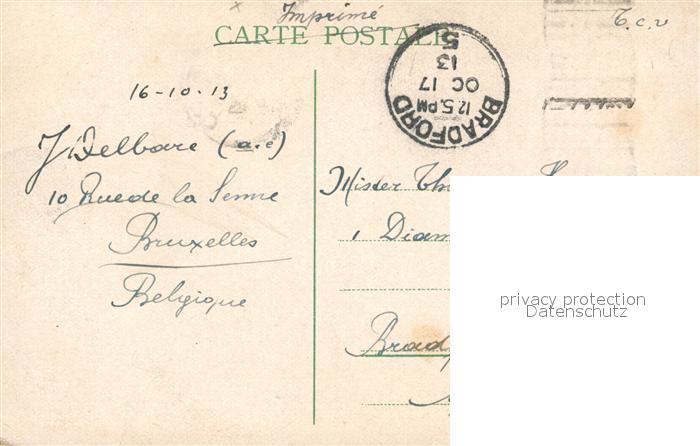 Imprimé
CARTE POSTALE
T.C.V
BRADFORD
12.5 PM
OC 17
13
5
16-10.13
J Delbare (a.é)
10 Rue de la Senne
Bruxelles
Belgique
Mister Th
1 Diam
Brad
privacy protection
Datenschutz